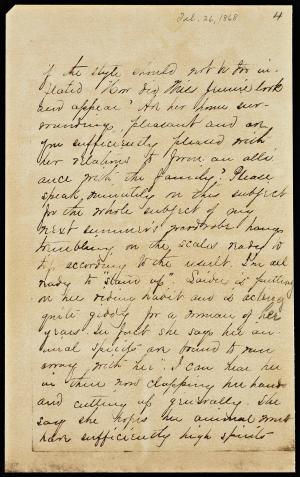 Feb. 26, 1868
4
if the style should not be too in-
flated. How did Miss Jennie look
and appear? Are her home sur-
roundings pleasant and are
you sufficiently pleased with
her relations to form an alli
ance with the family? Please
speak minutely on this subject
for the whole subject of my
next summer's wardrobe hangs
trembling on the scales ready to
tip according to the result. I'm all
ready to "stand up". Saidee is putting
on her riding habit and is acting
quite giddy for a woman of her
years. In fact she says her an-
imal spirits are bound to run
away with her. I can hear her
in there now clapping her hands
and cutting up generally. She
says she hopes the animal wont
have sufficiently high spirits